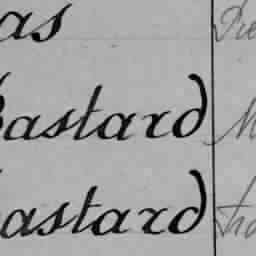 as
Bastard M
Bastard